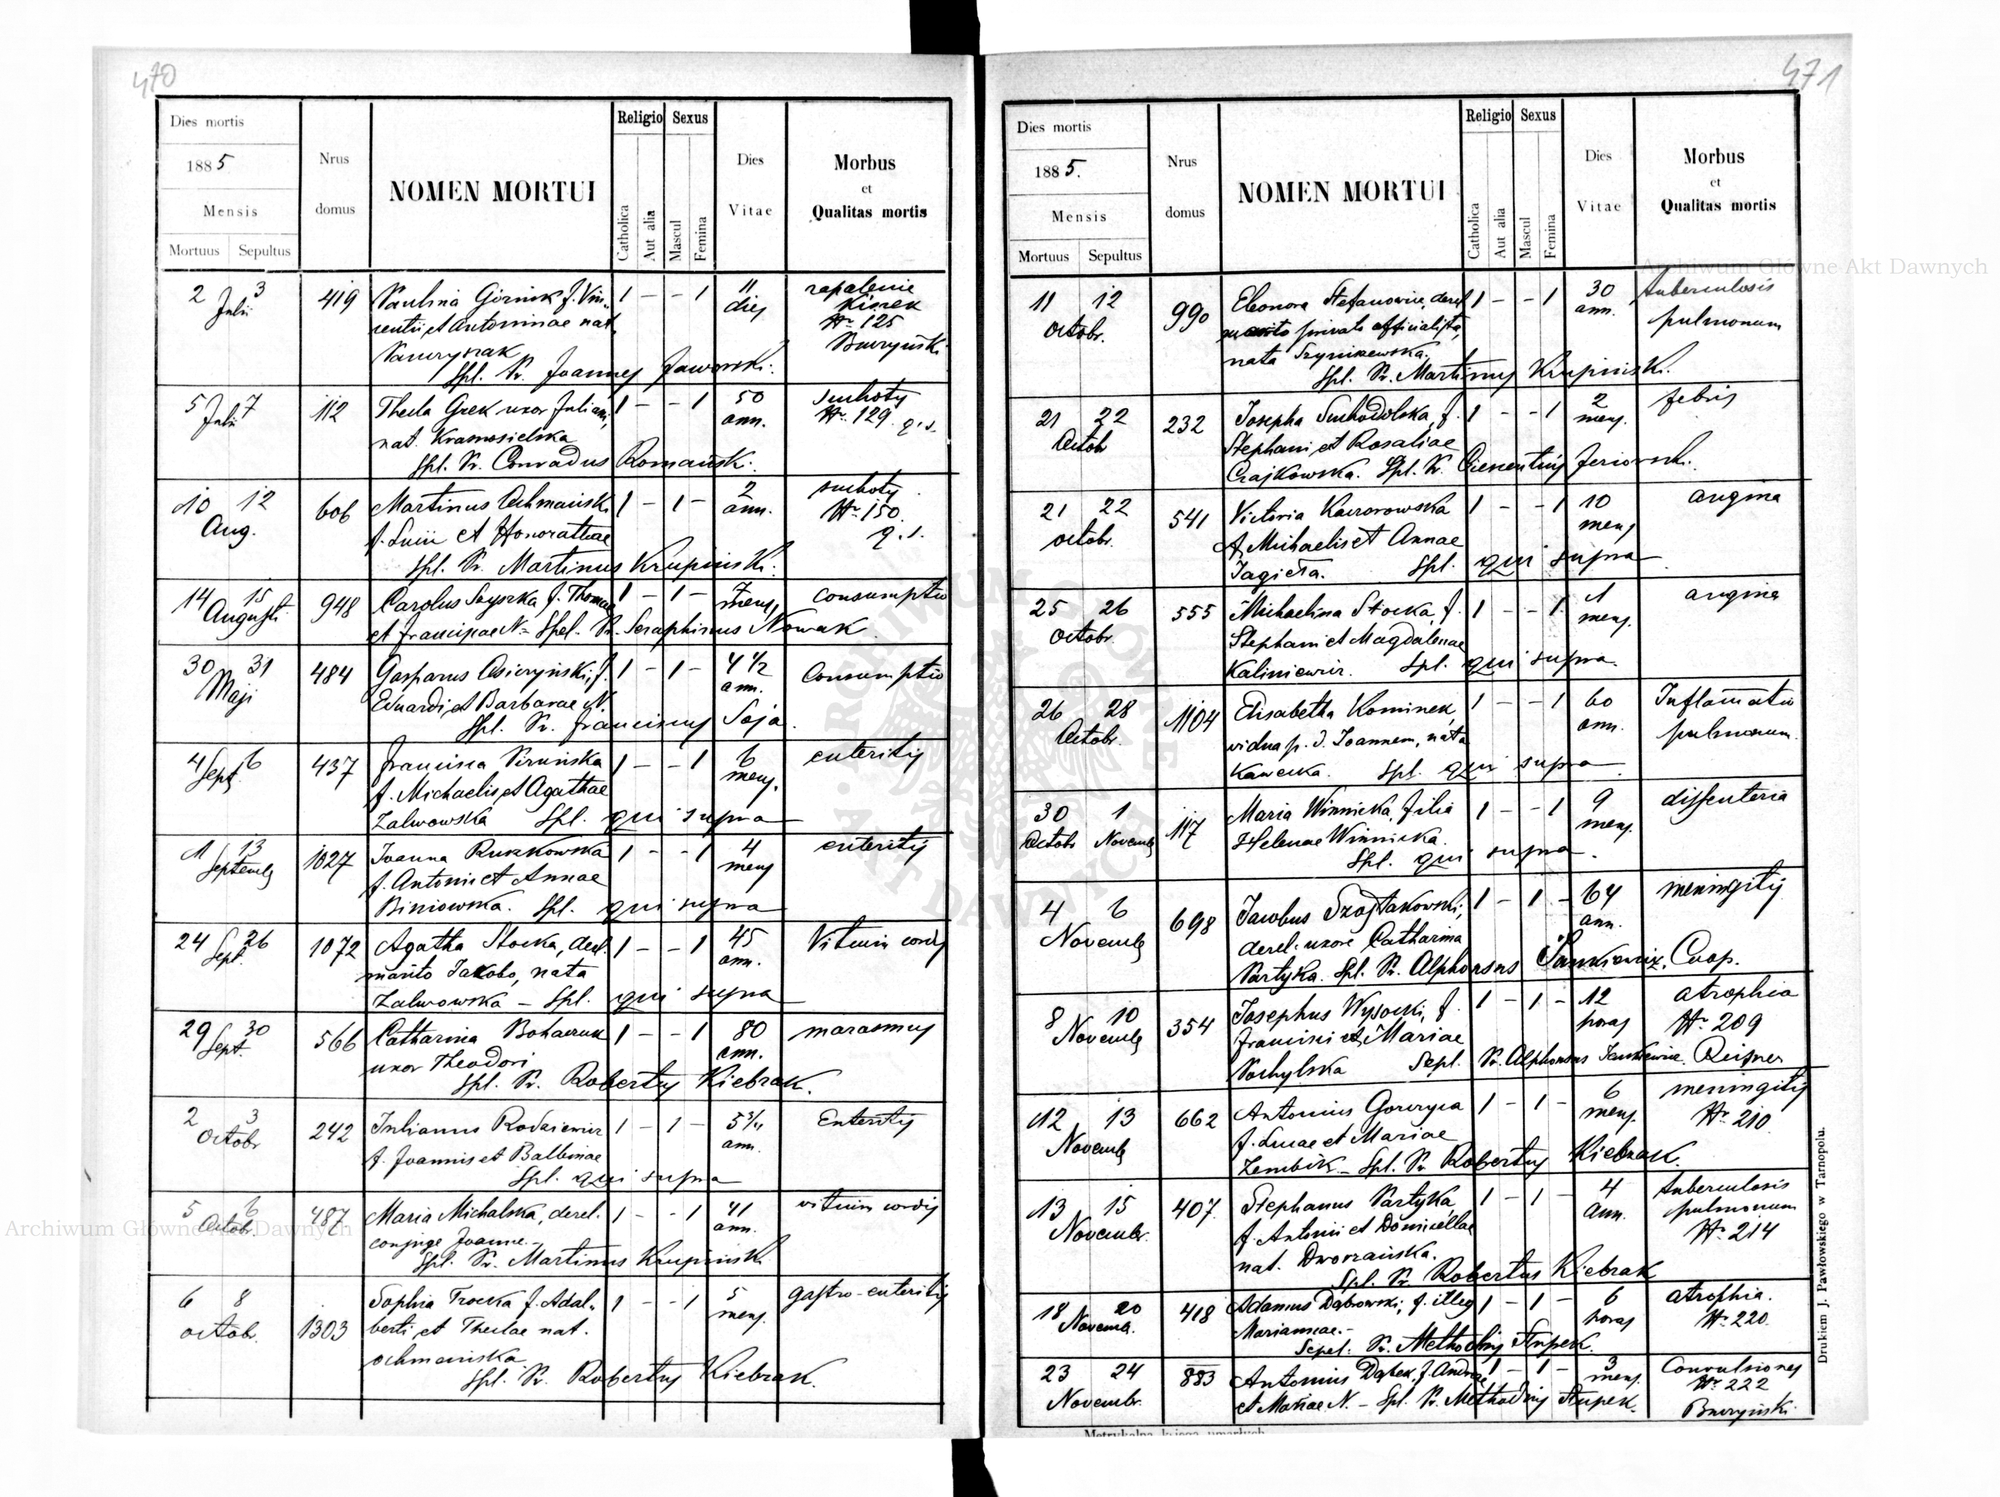 470
Dies mortis
1885
Mensis
Mortuus Sepultus
Nrus domus
NOMEN MORTUI
Religio
Catholica
Aut alia
Sexus
Mascul
Femina
Dies Vitae
Morbus
et
Qualitas mortis
2 3 419 Paulina Górnik f. Vin- 1 – – 1 11 zapalenie
Julii centii et Antoninae nat. dies kiszek
Nr 125
Spl. Pr. Joannes Jaworski.
5 7 112 Thecla Grek uxor Juliani, 1 – – 1 50 suchoty
Julii nat. Krasnosielska ann. Nr 129 q.s.
Spl. Pr. Conradus Romański.
10 12 606 Martinus Ochmański 1 – 1 – 2 suchoty
Aug. f. Lucii et Honorathae ann. Nr 150.
q. s.
Spl. Pr. Martinus Krupiński.
14 15 948 Carolus Szyszka f. Thomae 1 – 1 – 7 consumptio
Augusti et Franciscae N. Spel. Pr. Seraphinus Nowak mens,
30 31 484 Gasparus Osieczyński, f. 1 – 1 – 4 1/2 Consumptio
Maji Eduardi et Barbarae N. ann.
Spl. Pr. Franciscus Soja.
4 6 437 Francisca 1 – – 1 6 enteritis
Sept. f. Michaelis et Agathae mens.
Zalwowska Spl. qui supra
1 13 1027 Joanna Ruszkowska 1 – – 1 4 enteritis
Septemb f. Antonii et Annae mens
Biniowska. Spl. qui supra
24 26 1072 Agatha Stocka, derel. 1 – – 1 45 Vitium cordis
Sept. marito Jakobo, nata ann.
Zalwowska – Spl. qui supra
29 30 566 Catharina Bohaczuk 1 – – 1 80 marasmus
Sept. uxor Theodori ann.
Spl. Pr. Robertus Kiebzak.
2 3 242 Julianus Rodkiewicz 1 – 1 – 5 3/4 Enteritis
Octobr f. Joannis et Balbinae ann.
Spl. qui supra
5 6 487 Maria Michalska, derel. 1 – – 1 41 vitium cordis
Octobr. conjuge Joanne – ann.
Spl. Pr. Martinus Krupiński
6 8 1303 Sophia Trocka f. Adal- 1 – – 1 5 gastro-enteritis
Octob. berti et Theclae nat. mens.
Ochmańska
Spl. Pr. Robertus Kiebzak.
471
Dies mortis
1885.
Mensis
Mortuus Sepultus
Nrus domus
NOMEN MORTUI
Religio
Catholica
Aut alia
Sexus
Mascul
Femina
Dies Vitae
Morbus
et
Qualitas mortis
11 12 990 Eleonora Stefanowicz, derel 1 – – 1 30 tuberculosis
Octobr. marito privato officialista, ann. pulmonum
nata Szyniszewska.
Spl. Pr. Martinus Krupiński.
21 22 232 Josepha Suchodolska, f. 1 – – 1 2 febris
Octob Stephani et Rosaliae mens.
Czajkowska. Spl. Pr. Clementinus Jeziorski.
21 22 541 Victoria Kaczorowska 1 – – 1 10 angina
octobr. f. Michaelis et Annae mens
Jagieła. Spl. qui supra
25 26 555 Michaelina Stocka, f. 1 – – 1 1 angina
Octobr Stephani et Magdalenae mens.
Kaliniewicz. Spl. qui supra.
26 28 1104 Elisabetha Kominek, 1 – – 1 60 Inflamatio
Octobr. vidua p. d. Joannem, nata ann. pulmonum.
Kawecka. Spl. qui supra
30 1 117 Maria Winnicka, filia 1 – – 1 9 dissenteria
Octobr Novemb Helenae Winnicka. mens.
Spl. qui supra.
4 6 698 Jacobus 1 – 1 – 64 meningitis
Novemb derel. uxore Catharina ann.
Partyka. Spl. Pr. Alphonsus Jankiewicz, Coop.
8 10 354 Josephus Wysocki, f. 1 – 1 – 12 atrophia
Novemb Francisci et Mariae horas Nr 209
Pochylska Sepl. Pr. Alphonsus Jankiewicz. Reisner
12 13 662 Antonius Gorczyca 1 – 1 – 6 meningitis
Novemb f. Lucae et Mariae mens. Nr 210
Zembik – Spl. Pr. Robertus Kiebzak.
13 15 407 Stephanus Partyka, 1 – 1 – 4 tuberculosis
Novembr. f. Antonii et Domicellae Ann. pulmonum
nat. Dworzańska. Nr 214
Spl. Pr. Robertus Kiebzak
18 20 418 Adamus Dąbrowski, f. illeg 1 – 1 – 6 atrophia.
Novemb. Mariannae. – horas Nr 220.
Sepel. Pr. Methodius Słupek.
23 24 883 Antonius Dąbek, f. Andreae 1 – 1 – 3 Convulsiones
Novembr. et Mariae N. – Spl. Pr. Methodius Słupek. mens. Nr 222
Drukiem J. Pawłowskiego w Tarnopolu.
Metrykalna księga umarłych
Archiwum Główne Akt Dawnych
Archiwum Główne Akt Dawnych